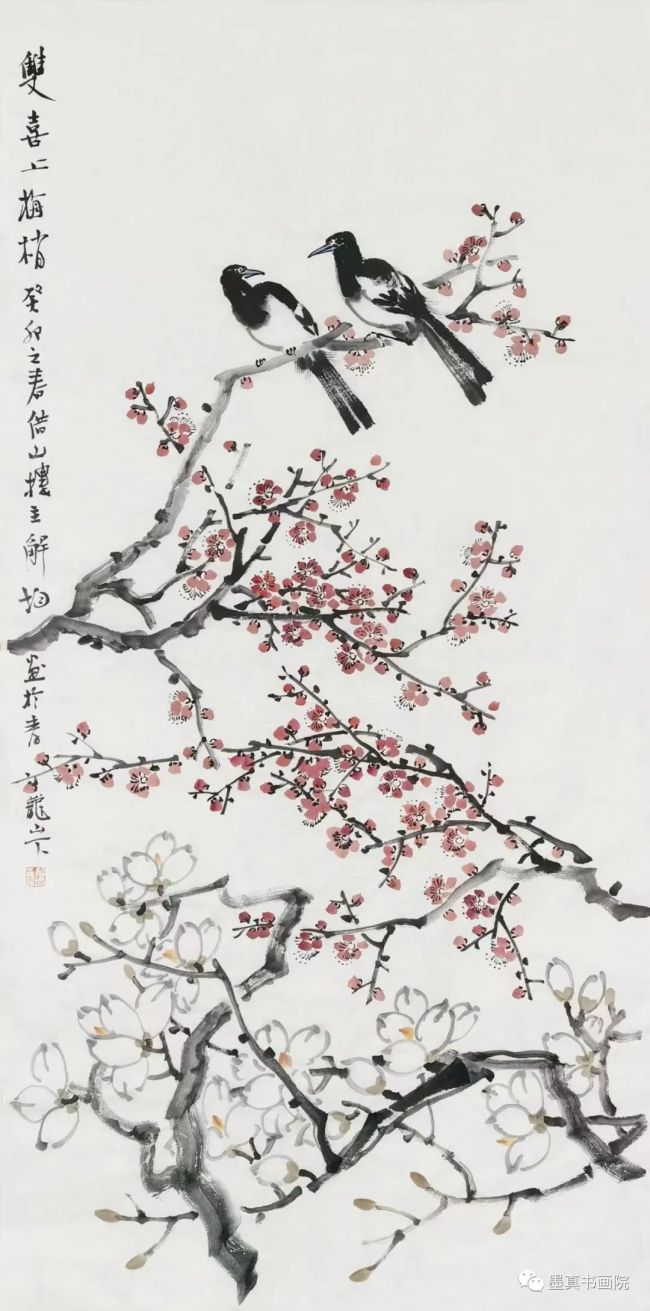 雙喜上梅梢 癸卯之春借山楼主解均畫於青龍山下
墨真书画院